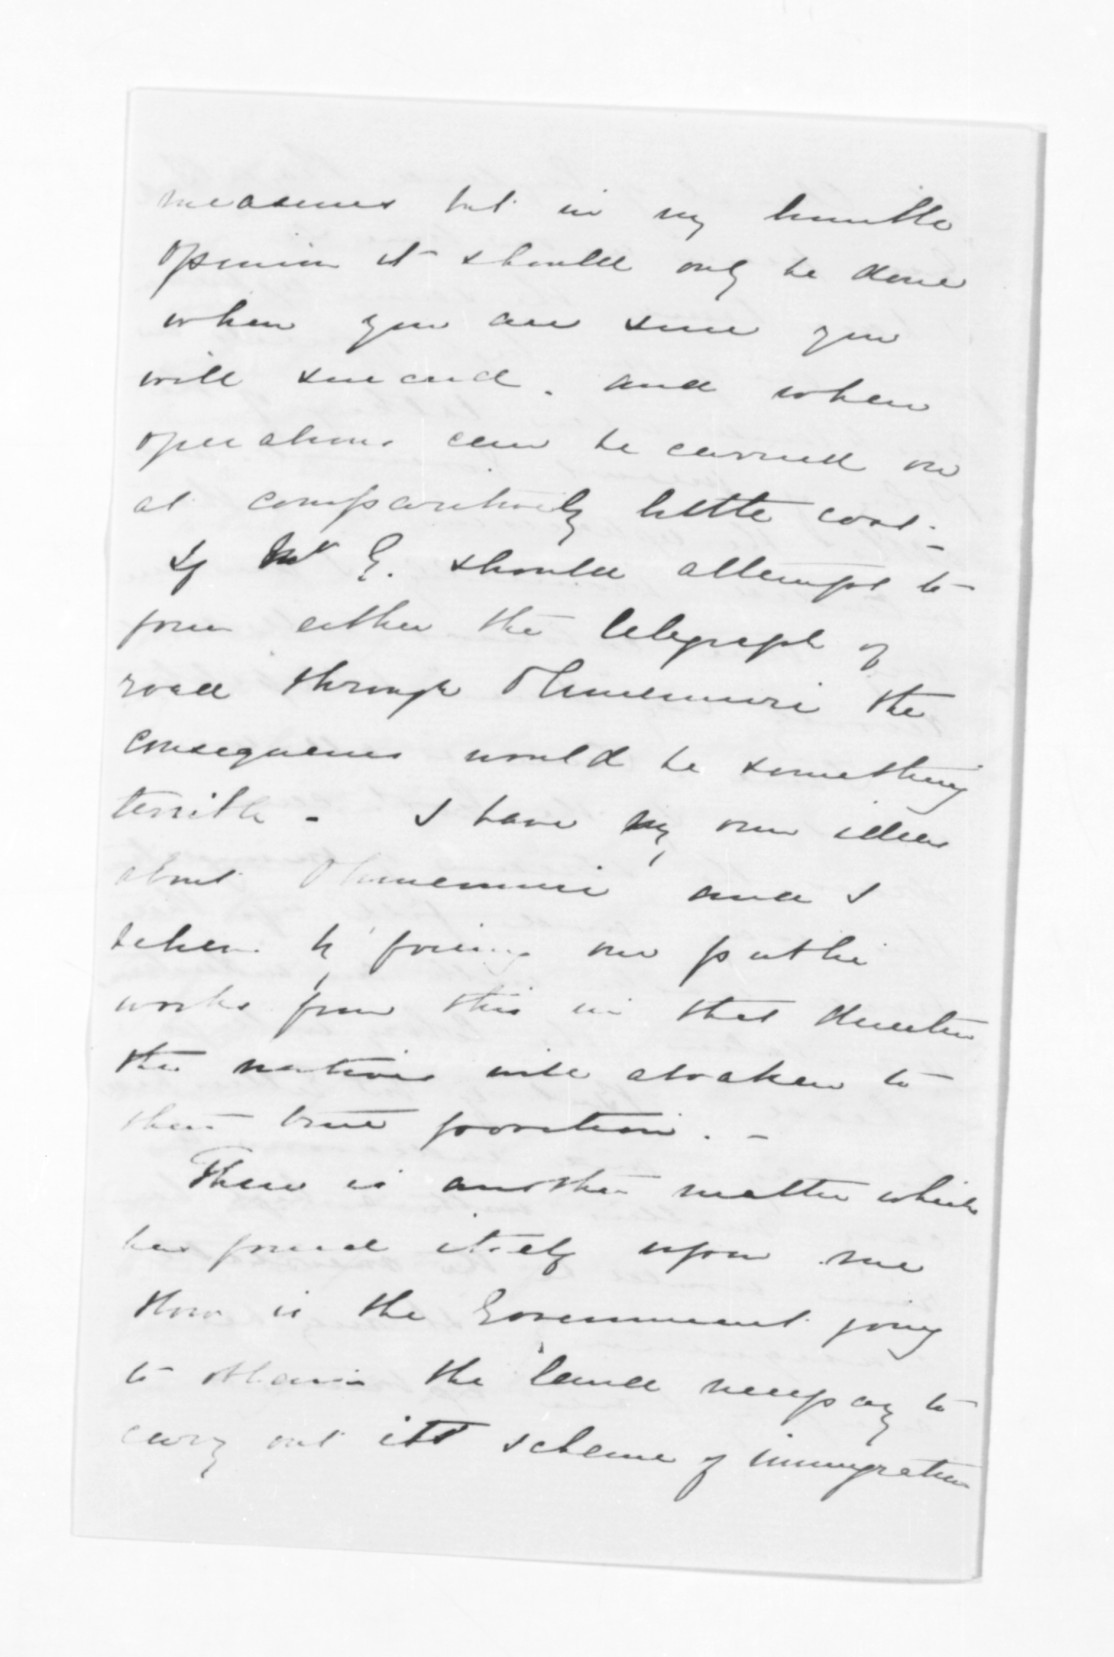 measures but in my humble
opinion it should only be done
when you are sure you
will succeed. and when
operations can be carried on
at comparitively little cost -
If Mr G. should attempt to
force either the telegraph or
road through Ohinemuri the
consequences would be something
terrible - I have my own ideas
about Ohinemuri and I
believe by forcing on public
works from this in that direction
the natives will awaken to
their true position. -
There is another matter which
has forced itself upon me
How is the Government going
to obtain the land necessary to
carry out its scheme of immigration